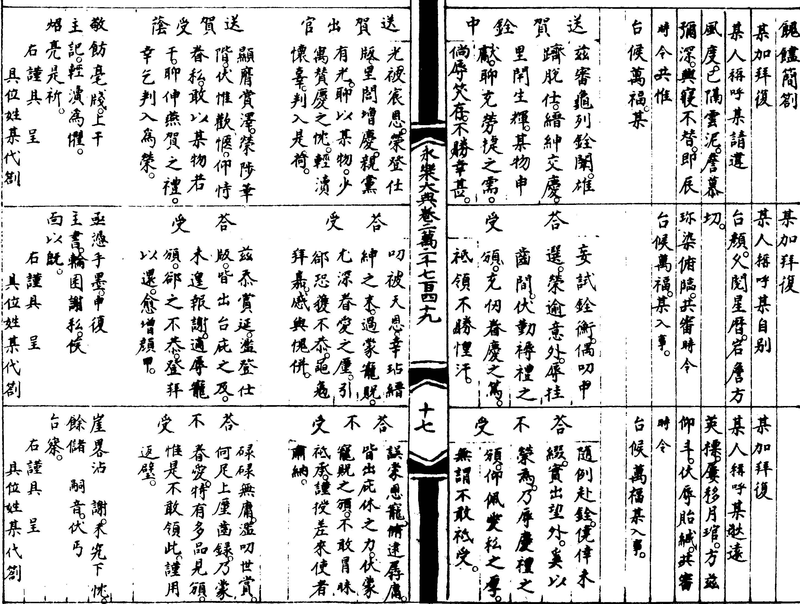 餽饋簡劄
某加拜復
某人稱呼某請違
風度。已隔雲泥。詹慕
彌深。興寢不替。即辰
時令共惟
台候萬福。某
送賀銓中
茲審龜列銓闈。雄
躋脫仕。縉紳交慶。
里閈生輝。某物申
獻。聊充勞㨗之需。
倘辱笑存。不勝幸甚。
送賀出官
光被宸恩。榮登仕
版。里閭增慶。親黨
有光。聊以某物。少
寓贊慶之忱。輕瀆
懷。幸判入是荷。
送賀受蔭
顯膺賞澤。榮陟華
階。伏惟歡愜。仰恃
眷私。敢以某物若
干。聊伸燕賀之禮。
幸乞判入為榮。
敬飭毫牋。上干
主記。輕瀆為懼。
炤亮是祈。
右謹具 呈
具位姓某代劄
某加拜復
某人稱呼某自別
台顏。又閱星曆。岩詹方
切。
珎染俯臨。共審時令
台候萬福。某入事。
答受
妄試銓衡。偶叨中
選。榮逾意外。辱挂
齒間。伏勤禮之
頒。充仞眷慶之篤。
祗領不勝惶汗。
答受
叨被天恩。幸玷縉
紳之末。過蒙寵貺。
尤深眷愛之厪。引
郤恐獲不恭。
拜嘉。感與愧併。
答受
茲忝賞延。濫登仕
版。皆出台庇之及。
未遑報謝。適辱寵
頒。郤之不恭。登拜
以還。愈增顏甲。
亟憑手墨。申復
主書。輪囷謝私。俟
面以既。
右謹具 呈
具位姓某代劄
某加拜復
某人稱呼某敻遠
英標。屢移月琯。方茲
仰斗。伏辱貽緘。共審
時令
台候萬福。某入事。
答不受
隨例赴銓。僥倖末
綴。實出望外。奚以
榮為。乃辱慶禮之
頒。仰佩愛私之厚。
無謂不敢祗受。
答不受
誤蒙恩寵。脩逮孱庸。
皆出庇休之力。伏蒙
寵貺之頒。不敢冒昧
祗承。謹俟差來使者
璧納。
答不受
碌碌無庸。濫叨世賞。
何足上厪齒錄。乃蒙
眷勞。特有多品見頒。
惟是不敢領此。謹用
返璧。
崖畧沾 謝。未究下忱。
餘儲 嗣音。伏丐
台察。
右謹具 呈
具位姓某代劄
永樂大典卷二萬二千七百四十九
十七